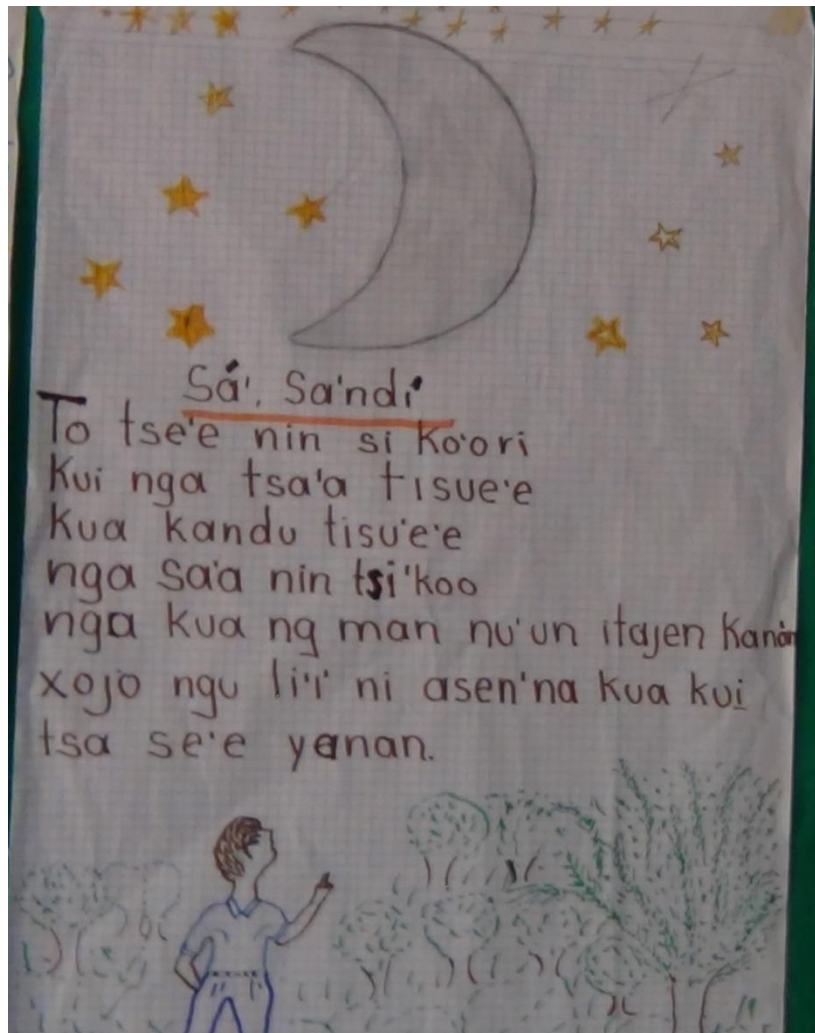 Sá', Sa'ndi'
To tse'e nin si ko'ori
Kui nga tsa'a tisue'e
Kua kandu tisu'e'e
nga sa'a nin tsi'koo
nga kua ng man nu'un itajen kanán
xojo ngu li'i' ni asen'na kua kui
tsa se'e yanan.